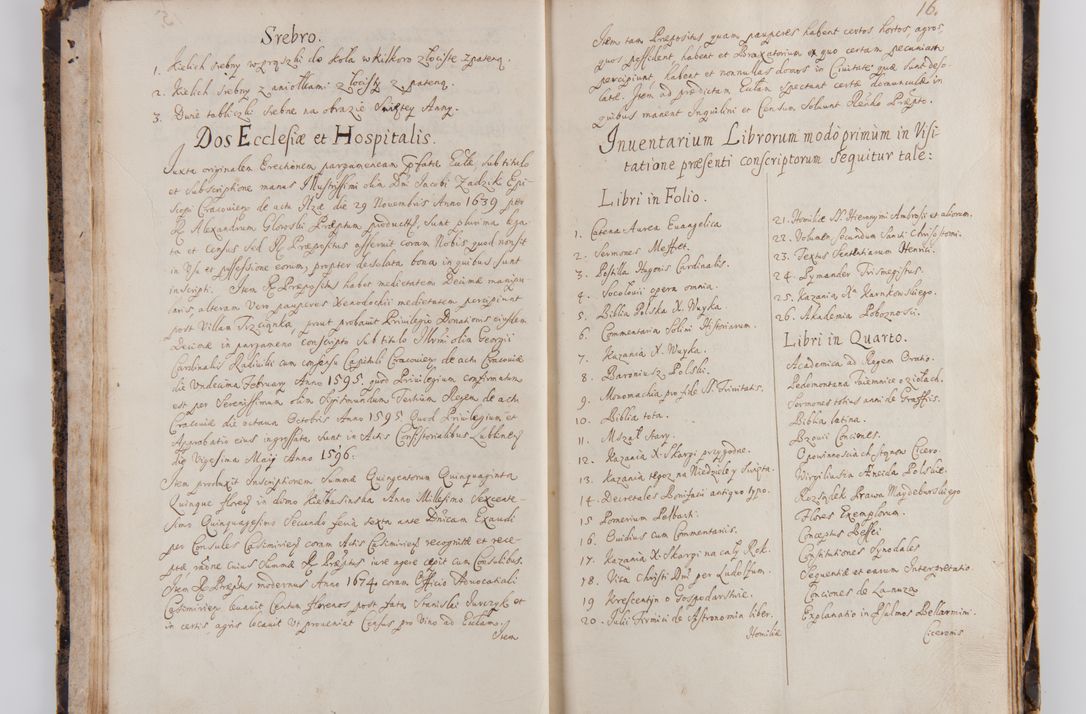 Srebro.
1. Kielich srebny w prąszki do koła w kilkoro złociste z pateną.
2. Kielich srebny z aniołkami złocisty z pateną.
3. Dwie tabliczki srebne na obrazie Swiętey Anny.
Dos Ecclesiæ et Hospitalis.
Juxta originalem Erectionem pargameneam pfatæ Eulæ sub titulo
et subscriptione manus Illustrissimi olim Dni Jacobi Zadzik Epi-
scopi Cracovien de actu Ilzæ die 29 Novembris Anno 1639 per
R Alexandrum Gloroski Præptum productæ, sunt plurima lega-
ta et Census sed R Præpositus asseruit coram Nobis quod non sit
in Usu et possessione eorum, propter desolata bona in quibus sunt
inscripti. Item R Præpositus habet medietatem Decimæ manipu-
laris, alteram vero pauperes Xenodochii medietatem percipiunt
post Villam Trzcianka, prout probavit Privilegio Donationis eiusdem
Decimæ in pargameno conscripto sub titulo Illmi olim Georgii
Cardinalis Radivilii cum consensu Capituli Cracovien de actu Cracoviæ
die Undecima February Anno 1595. quod Privilegium confirmatum
est per Serenissimum olim Sigismundum Tertium Regem de actu
Cracoviæ die octava Octobris Anno 1595 Quod Privilegium et
Approbatio eius ingrossata sunt in Actis Consistorialibus Lublinen
die Vigesima Maij Anno 1596.
Item produxit Inscriptionem Summæ Quingentorum Quinquaginta
Quinque floren in domo Kiełbasinska Anno Millesimo Sexcente-
simo Quinquagesimo Secundo feria sexta ante Dnicam Exaudi
per Consules Casimirien coram Actis Casimirien recognitæ et rece-
ptæ, rãone cuius Summæ R Præptus iure agere cæpit cum Consulibus.
Item R Præptus modernus Anno 1674 coram Officio Advocatiali
Casimirien levavit Centum florenos post fata Stanislai Jurczyk et
in certis agris locavit Ut proveniat Census pro Vino ad Eccliam.
Item
16.
Item tam Præpositus quam pauperes habent certos hortos, agros,
quos possident, habent et Braxatorium ex quo certam pecuniam
percipiunt, habent et nonnullas domos in Civitate quæ sunt deso-
latæ. Item ad prædictam Eulam spectant certæ domunculæ in
quibus manent Inquilini et Censum solvunt Rendo Præpto.
Inventarium Librorum modo primùm in Visi-
tatione præsenti conscriptorum sequitur tale:
Libri in Folio.
1. Catena Aurea Euangelica
2. Sermones Meffret.
3. Postilla Hugonis Cardinalis.
4. Socolovii opera omnia.
5. Biblia Polska X. Wuyka
6. Commentaria Selini Historiarum.
7. Kazania X. Wuyka.
8. Baroniusz Polski.
9. Monomachia pro fide SS. Trinitatis.
10. Biblia tota.
11. Mszał stary.
12. Kazania X. Skargi przygodne.
13. Kazania tegoz na Niedziele y Swięta.
14. Decretales Bonifacii antiquo typo.
15 Pomerium Pelbarti.
16. Ovidius cum Commentariis.
17. Kazania X. Skargi na cały Rok.
18. Vita Christi Dni per Ludolfum.
19 Krescentin o Gospodarstwie.
20. Julii Firmici de Astronomia liber.
Homiliæ
21. Homiliæ SS. Hieronymi Ambrosii et aliorum.
22. Volumen secundum Sancti Chrisostomi.
23. Textus Sententiarum Henrici.
24. Pymander Trismegistus.
25. Kazania Xa Karnkowskiego.
26. Akademia Pobożnosci.
Libri in Quarto.
Academica ad Regem Oratio.
Pedemontana Taiemnice o ziołach.
Sermones totius anni de Graffiis.
Biblia latina.
Bzovii Conciones.
O powinnosciach stynow Cicero.
Virgiliusza Aneida Polskie.
Porządek Prawa Maydeburskiego
Flores Exemplorum.
Conceptus Bessei
Constitutiones Synodales
Sequentiæ et earum Interpretatio.
Conciones de Lanuza
Explanatio in Psalmos Bellarmini.
Ciceronis